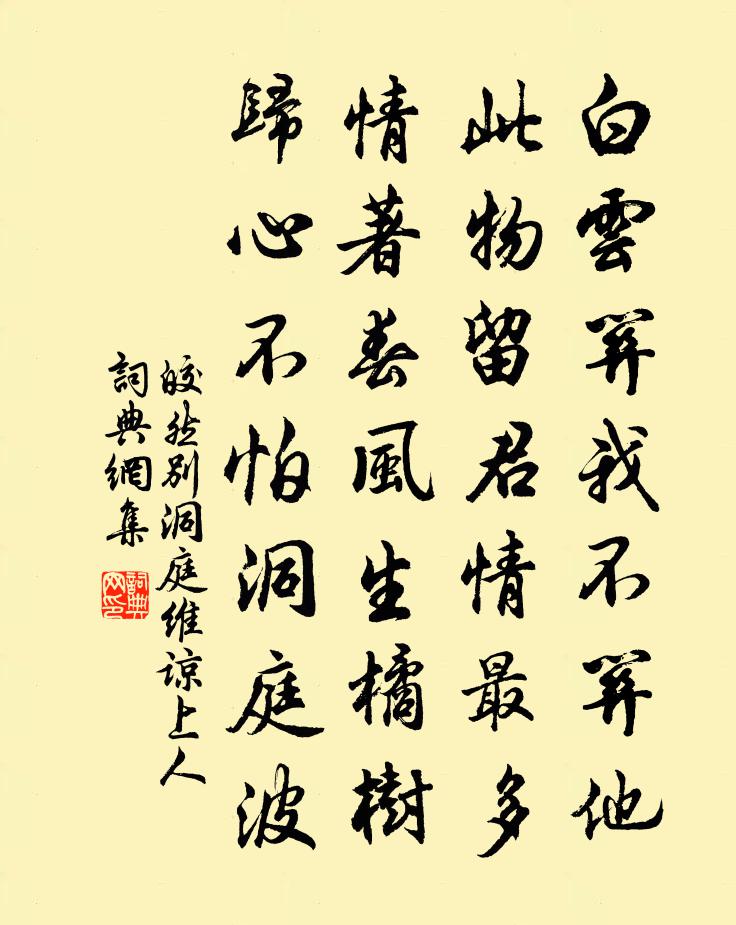 白雲關我不關他
此物留君情最多
情著春風生橘樹
歸心不怕洞庭波
皎然別洞庭維諒上人
詞典網集
詞典
网印